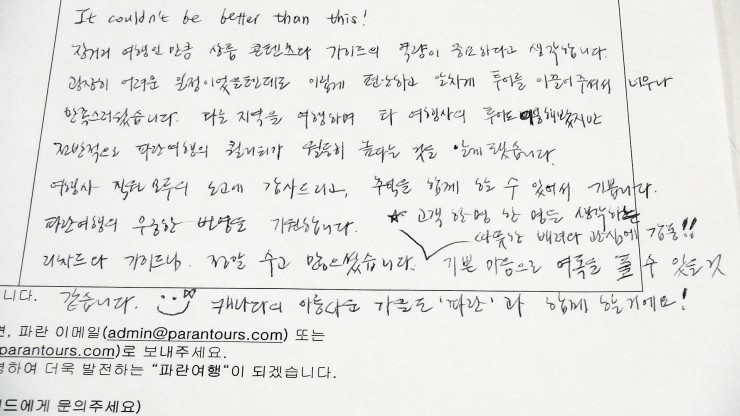 It couldn't be better than this!
장거리 여행인 만큼 상품 콘텐츠와 가이드의 역량이 중요하다고 생각합니다.
굉장히 어려운 일정이었을텐데도 이렇게 편안하고 알차게 투어를 이끌어주셔서 너무나
만족스러웠습니다. 다른 지역을 여행하며 타 여행사의 투어도 이용해봤지만
전반적으로 파란여행의 퀄리티가 월등히 높다는 것을 알게 됐습니다.
여행사 직원 모두의 노고에 감사드리고, 추억을 함께 할 수 있어서 기쁩니다.
파란여행의 무궁한 번영을 기원합니다. ★ 고객 한명 한 명을 생각하는
따뜻한 배려와 관심에 감동!!
리차드와 가이드님. 정말 수고 많으셨습니다. 기쁜 마음으로 여독을 풀 수 있을 것
니다. 같습니다. 캐나다의 아름다운 가을도 '파란'과 함께 할거예요!
면, 파란 이메일(admin@parantours.com) 또는
parantours.com)로 보내주세요.
영하여 더욱 발전하는 "파란여행"이 되겠습니다.
드에게 문의주세요)